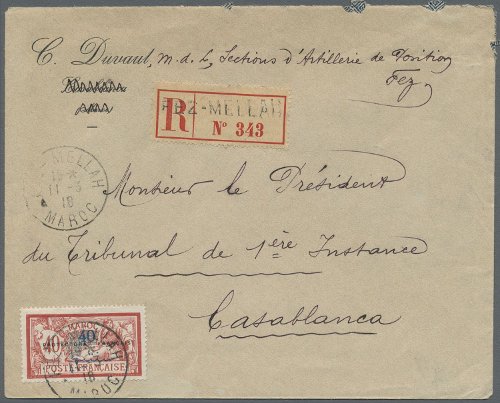 C. Duvaut, m. d. L, Sections d'Artillerie de Position
Fez
R
FEZ-MELLAH
N° 343
MELLAH
15 *
11 -3
18
MAROC
Monsieur le Président
du Tribunal de 1ère Instance
Casablanca
MAROC
40
40
POSTE FRANÇAISE
11
18
MAROC